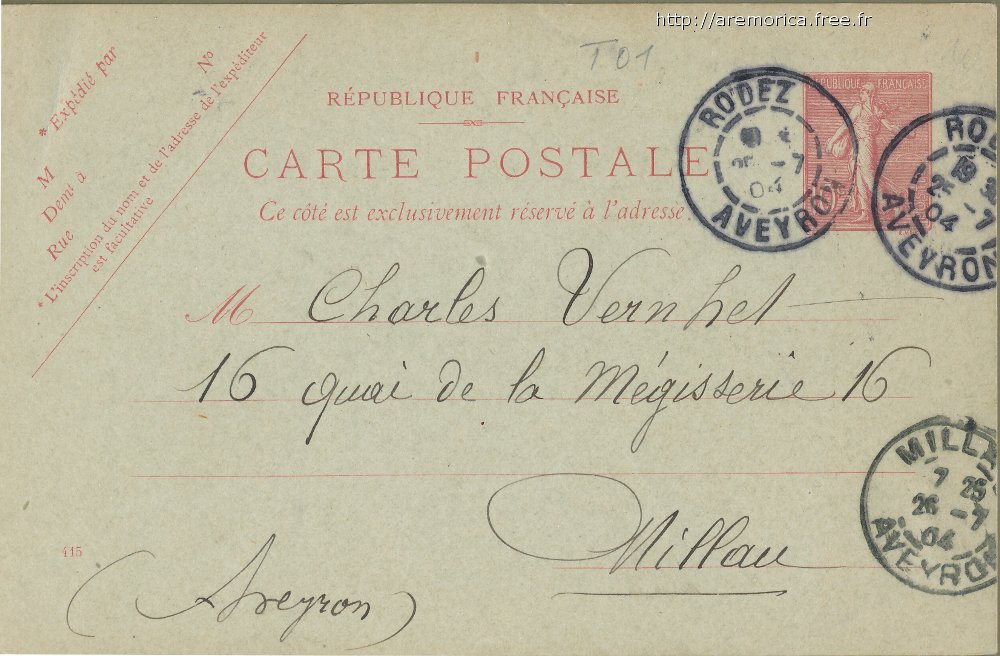 http://aremorica.free.fr
T 01
* Expédié par
M
Demt à
Rue
No
* L'inscription du nom et de l'adresse de l'expéditeur
est facultative
RÉPUBLIQUE FRANÇAISE
CARTE POSTALE
Ce côté est exclusivement réservé à l'adresse.
RÉPUBLIQUE FRANÇAISE
RODEZ
25 -7
04
AVEYRON
ROD
19
25 -7
04
AVEYRON
M Charles Vernhet
16 quai de la Mégisserie 16
Millau
(Aveyron)
415
MILLA
7 25
26 -7
04
AVEYRON